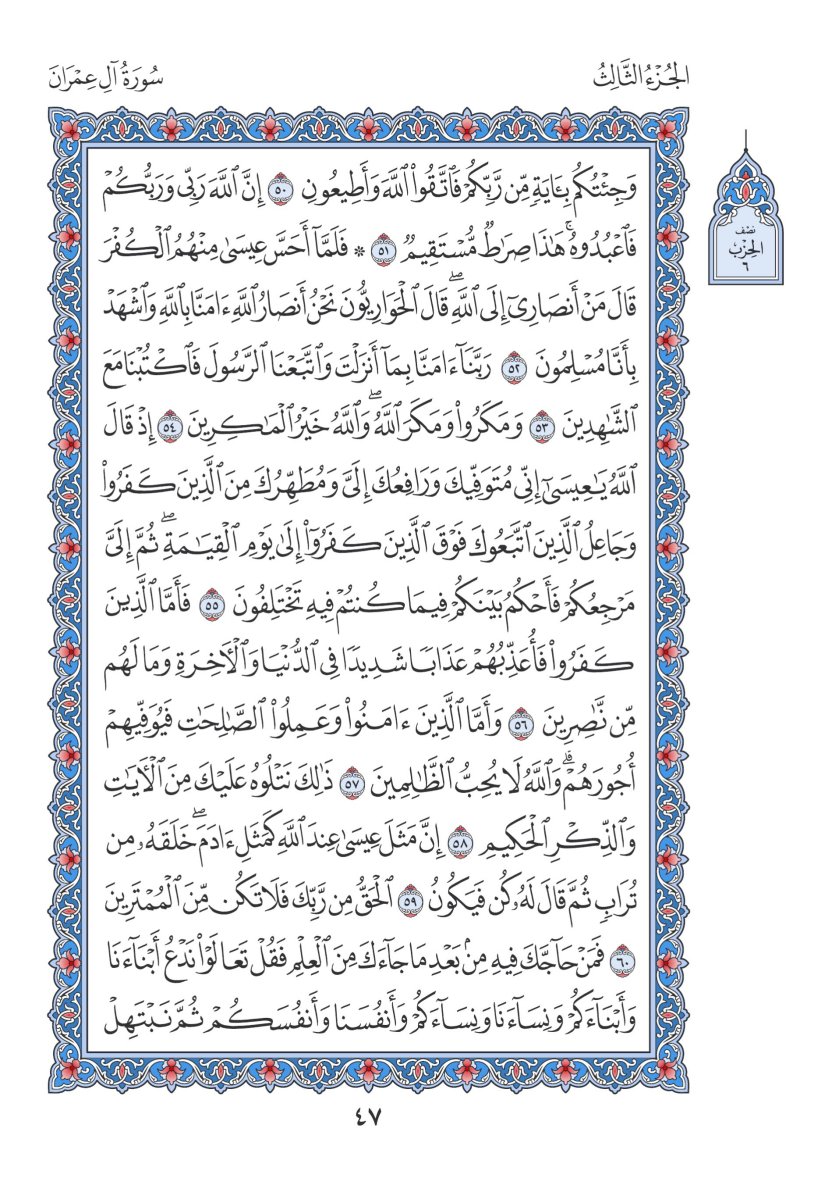 الجُزْءُ الثَّالِثُ
سُورَةُ آلِ عِمْرَانَ
نِصْف
الحِزْب
٦
وَجِئْتُكُم بِـَٔايَةٖ مِّن رَّبِّكُمْ فَٱتَّقُواْ ٱللَّهَ وَأَطِيعُونِ ٥٠ إِنَّ ٱللَّهَ رَبِّي وَرَبُّكُمْ
فَٱعْبُدُوهُۚ هَٰذَا صِرَٰطٞ مُّسْتَقِيمٞ ٥١ * فَلَمَّآ أَحَسَّ عِيسَىٰ مِنْهُمُ ٱلْكُفْرَ
قَالَ مَنْ أَنصَارِيٓ إِلَى ٱللَّهِۖ قَالَ ٱلْحَوَارِيُّونَ نَحْنُ أَنصَارُ ٱللَّهِ ءَامَنَّا بِٱللَّهِ وَٱشْهَدْ
بِأَنَّا مُسْلِمُونَ ٥٢ رَبَّنَآ ءَامَنَّا بِمَآ أَنزَلْتَ وَٱتَّبَعْنَا ٱلرَّسُولَ فَٱكْتُبْنَا مَعَ
ٱلشَّٰهِدِينَ ٥٣ وَمَكَرُواْ وَمَكَرَ ٱللَّهُۖ وَٱللَّهُ خَيْرُ ٱلْمَٰكِرِينَ ٥٤ إِذْ قَالَ
ٱللَّهُ يَٰعِيسَىٰٓ إِنِّي مُتَوَفِّيكَ وَرَافِعُكَ إِلَيَّ وَمُطَهِّرُكَ مِنَ ٱلَّذِينَ كَفَرُواْ
وَجَاعِلُ ٱلَّذِينَ ٱتَّبَعُوكَ فَوْقَ ٱلَّذِينَ كَفَرُوٓاْ إِلَىٰ يَوْمِ ٱلْقِيَٰمَةِۖ ثُمَّ إِلَيَّ
مَرْجِعُكُمْ فَأَحْكُمُ بَيْنَكُمْ فِيمَا كُنتُمْ فِيهِ تَخْتَلِفُونَ ٥٥ فَأَمَّا ٱلَّذِينَ
كَفَرُواْ فَأُعَذِّبُهُمْ عَذَابٗا شَدِيدٗا فِي ٱلدُّنْيَا وَٱلْأٓخِرَةِ وَمَا لَهُم
مِّن نَّٰصِرِينَ ٥٦ وَأَمَّا ٱلَّذِينَ ءَامَنُواْ وَعَمِلُواْ ٱلصَّٰلِحَٰتِ فَيُوَفِّيهِمْ
أُجُورَهُمْۗ وَٱللَّهُ لَا يُحِبُّ ٱلظَّٰلِمِينَ ٥٧ ذَٰلِكَ نَتْلُوهُ عَلَيْكَ مِنَ ٱلْأٓيَٰتِ
وَٱلذِّكْرِ ٱلْحَكِيمِ ٥٨ إِنَّ مَثَلَ عِيسَىٰ عِندَ ٱللَّهِ كَمَثَلِ ءَادَمَۖ خَلَقَهُۥ مِن
تُرَابٖ ثُمَّ قَالَ لَهُۥ كُن فَيَكُونُ ٥٩ ٱلْحَقُّ مِن رَّبِّكَ فَلَا تَكُن مِّنَ ٱلْمُمْتَرِينَ
٦٠ فَمَنْ حَآجَّكَ فِيهِ مِنۢ بَعْدِ مَا جَآءَكَ مِنَ ٱلْعِلْمِ فَقُلْ تَعَالَوْاْ نَدْعُ أَبْنَآءَنَا
وَأَبْنَآءَكُمْ وَنِسَآءَنَا وَنِسَآءَكُمْ وَأَنفُسَنَا وَأَنفُسَكُمْ ثُمَّ نَبْتَهِلْ
٤٧